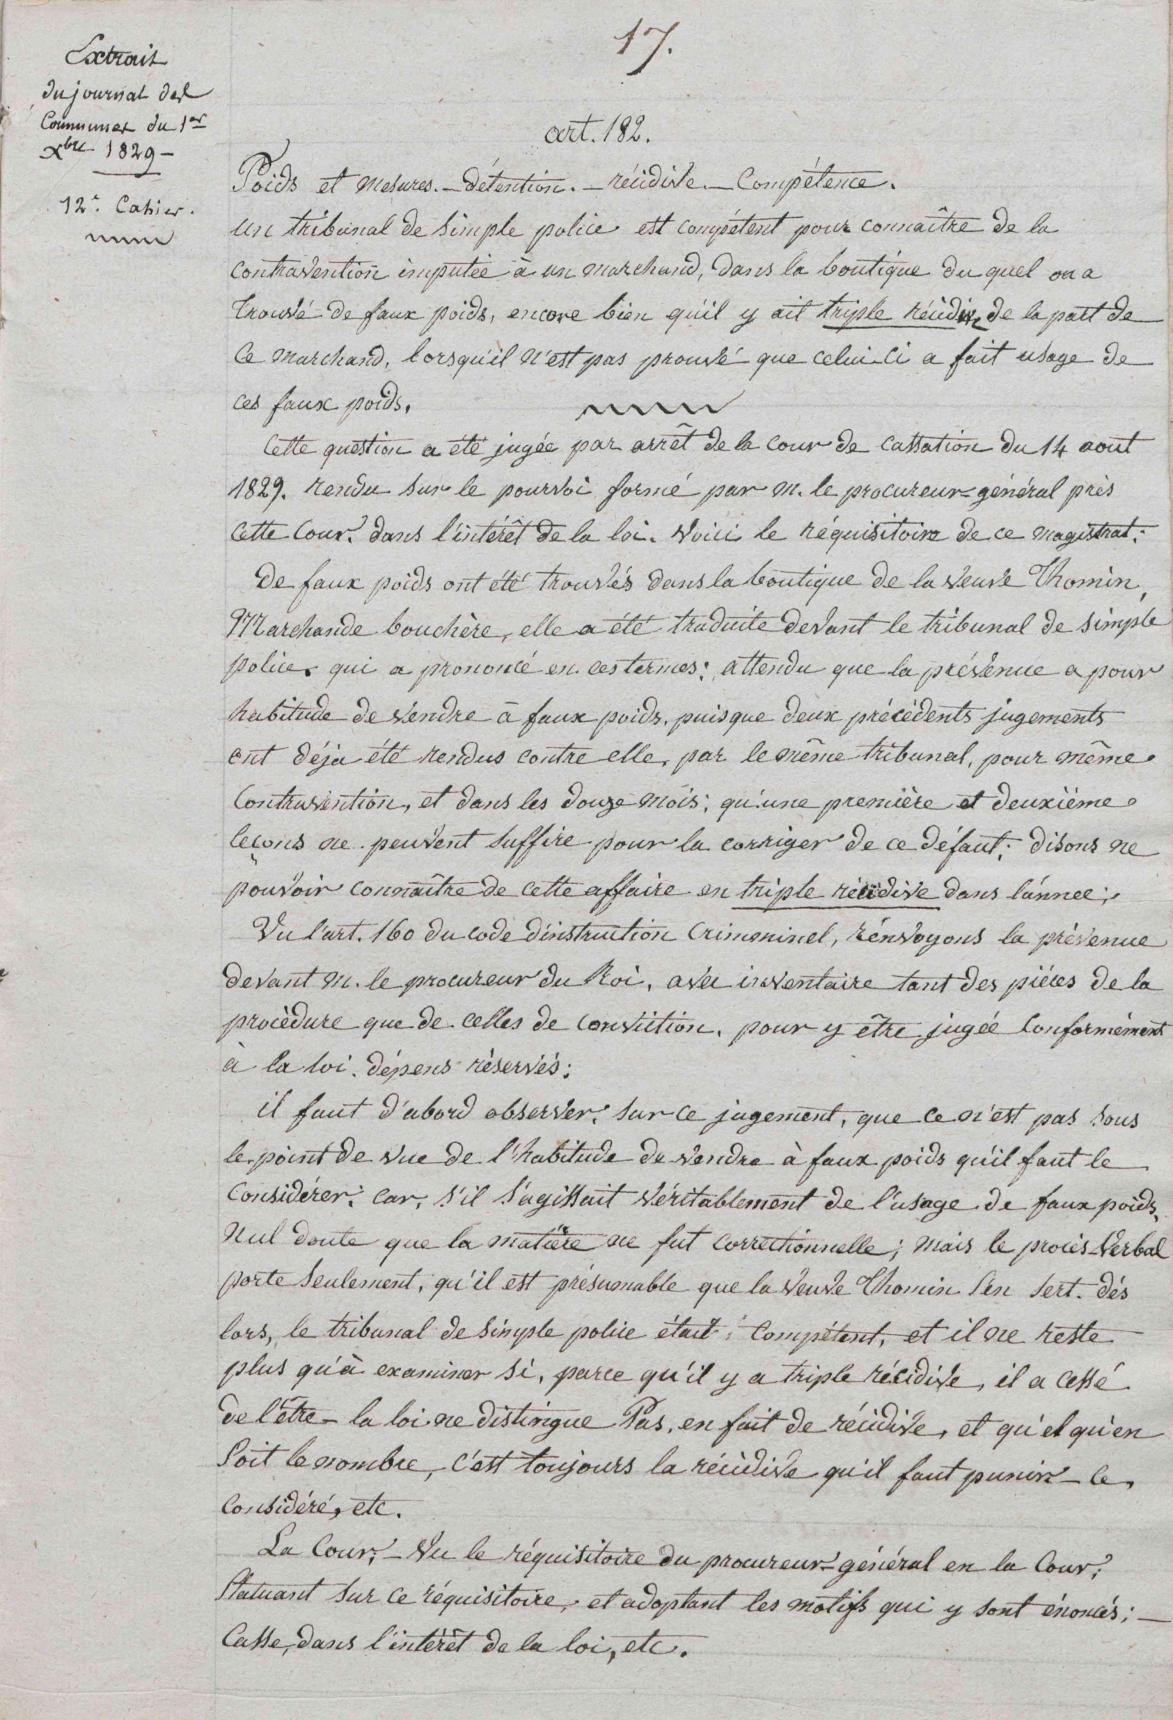 17.
Extrait
du journal des
Communes du 1er
Xbre 1829 –
12e. Cahier.
art. 182.
Poids et mesures. – détention. – récidive. – Compétence.
un tribunal de simple police est compétent pour connaître de la
contravention imputée à un marchand, dans la boutique du quel on a
trouvé de faux poids, encore bien qu'il y ait triple récidive de la part de
ce marchand, lorsqu'il n'est pas prouvé que celui ci a fait usage de
ces faux poids.
Cette question a été jugée par arrêt de la cour de cassation du 14 aout
1829. rendu sur le pourvoi formé par m. le procureur-général près
cette Cour. dans l'intérêt de la loi. voici le réquisitoire de ce magistrat:
De faux poids ont été trouvés dans la boutique de la veuve Thomin,
Marchande bouchère, elle a été traduite devant le tribunal de simple
police. qui a prononcé en ces termes: attendu que la prévenue a pour
habitude de vendre à faux poids, puisque deux précédents jugements
ont déja été rendus contre elle, par le même tribunal, pour même
Contravention, et dans les douze mois; qu'une première et deuxiéme
leçons ne peuvent suffire pour la corriger de ce défaut; disons ne
pouvoir connaître de cette affaire en triple récidive dans l'année;
Vu l'art. 160 du code d'instruction Crimminel, rénvoyons la prévenue
devant m. le procureur du Roi, avec inventaire tant des piéces de la
procèdure que de celles de conviction. pour y être jugée Conformément
à la loi. dépens réservés:
il faut d'abord observer, sur ce jugement, que ce n'est pas sous
le point de vue de l'habitude de vendre à faux poids qu'il faut le
Considérer; car, s'il s'agissait véritablement de l'usage de faux poids,
Nul doute que la matière ne fut correctionnelle; mais le procès-verbal
porte seulement, qu'il est présumable que la veuve Thomin s'en sert. dés
lors, le tribunal de simple police était compétent, et il ne reste
plus qu'à examiner si, parce qu'il y a triple récidive, il a cessé
de l'être – la loi ne distingue Pas, en fait de récidive, et qu'el qu'en
soit le nombre, c'est toujours la récidive qu'il faut punir – ce
considéré, etc.
La Cour, – Vu le réquisitoire du procureur-général en la Cour;
statuant sur ce réquisitoire, et adoptant les motifs qui y sont énoncés; –
Casse, dans l'intérêt de la loi, etc.